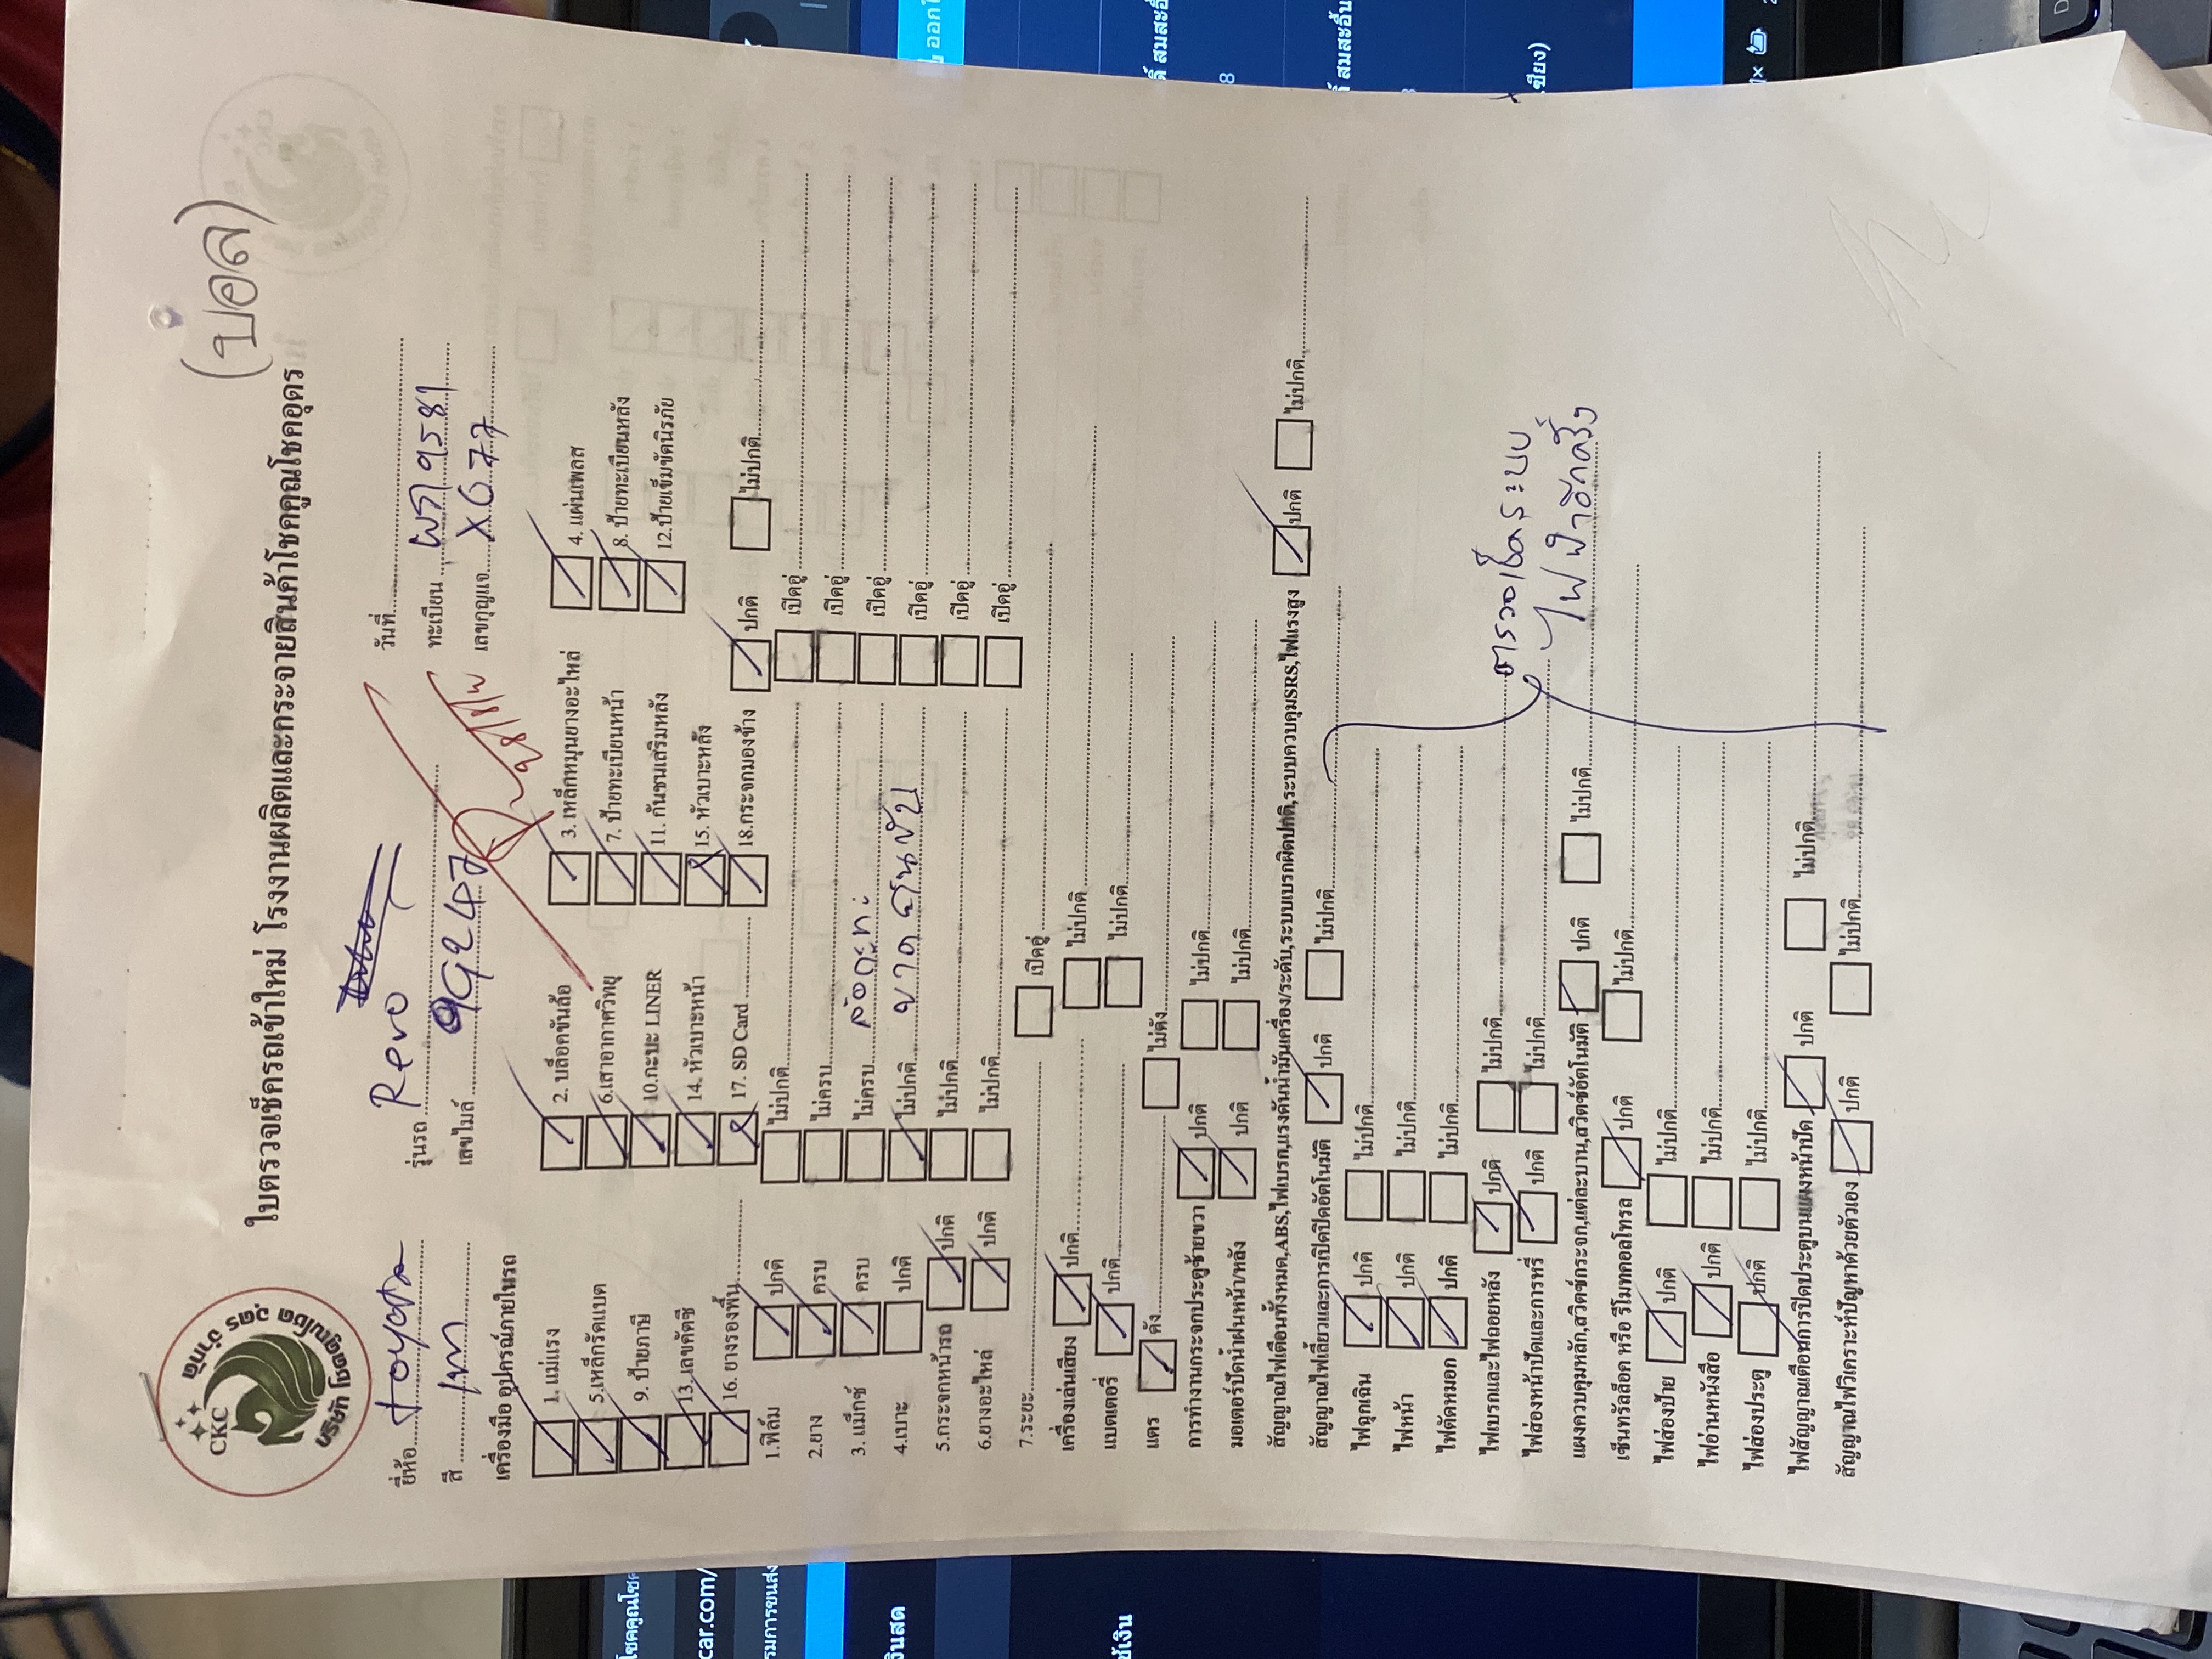 (ปอล)
CKC
บริษัท โชคคูณโชค อุดร จำกัด
ใบตรวจเช็ครถเข้าใหม่ โรงงานผลิตและกระจายสินค้าโชคคูณโชคอุดร
ยี่ห้อ toyota รุ่นรถ Revo วันที่
สี เทา เลขไมล์ ทะเบียน
เลขกุญแจ X677
เครื่องมือ อุปกรณ์ภายในรถ
1. แม่แรง 2. บล็อคขันล้อ 3. เหล็กหมุนยางอะไหล่ 4. แผ่นเพลส
5.เหล็กรัดแบต 6.เสาอากาศวิทยุ 7. ป้ายทะเบียนหน้า 8. ป้ายทะเบียนหลัง
9. ป้ายภาษี 10.กะบะ LINER 11. กันชนเสริมหลัง 12.ป้ายเข็มขัดนิรภัย
13.เลขคัตซี 14. หัวเบาะหน้า 15. หัวเบาะหลัง
16. ยางรองพื้น 17. SD Card 18.กระจกมองข้าง ปกติ ไม่ปกติ
1.ฟิล์ม ปกติ ไม่ปกติ เปิดอู่
2.ยาง ครบ ไม่ครบ เปิดอู่
3. แม็กซ์ ครบ ไม่ครบ ล้อกะทะ เปิดอู่
4.เบาะ ปกติ ไม่ปกติ ขาดคนขับ เปิดอู่
5.กระจกหน้ารถ ปกติ ไม่ปกติ เปิดอู่
6.ยางอะไหล่ ปกติ ไม่ปกติ เปิดอู่
7.ระยะ เปิดอู่
เครื่องเล่นเสียง ปกติ ไม่ปกติ
แบตเตอรี่ ปกติ ไม่ปกติ
แตร ดัง ไม่ดัง
การทำงานกระจกประตูซ้ายขวา ปกติ ไม่ปกติ
มอเตอร์ปัดน้ำฝนหน้า/หลัง ปกติ ไม่ปกติ
สัญญาณไฟเตือนทั้งหมด,ABS,ไฟเบรก,แรงดันน้ำมันเครื่อง/ระดับ,ระบบเบรกผิดปกติ,ระบบควบคุมSRS,ไฟแรงสูง ปกติ ไม่ปกติ
สัญญาณไฟเลี้ยวและการเปิดปิดอัตโนมัติ ปกติ ไม่ปกติ
ไฟฉุกเฉิน ปกติ ไม่ปกติ
ไฟหน้า ปกติ ไม่ปกติ
ไฟตัดหมอก ปกติ ไม่ปกติ
ไฟเบรกและไฟถอยหลัง ปกติ ไม่ปกติ ตรวจเช็คระบบ
ไฟส่องหน้าปัดและการหรี่ ปกติ ไม่ปกติ ไฟฟ้าอีกครั้ง
แผงควบคุมหลัก,สวิตซ์กระจก,แต่ละบาน,สวิตซ์อัตโนมัติ ปกติ ไม่ปกติ
เซ็นทรัลล็อค หรือ รีโมทคอลโทรล ปกติ ไม่ปกติ
ไฟส่องป้าย ปกติ ไม่ปกติ
ไฟอ่านหนังสือ ปกติ ไม่ปกติ
ไฟส่องประตู ปกติ ไม่ปกติ
ไฟสัญญาณเตือนการปิดประตูบนแผงหน้าปัด ปกติ ไม่ปกติ
สัญญาณไฟวิเคราะห์ปัญหาด้วยตัวเอง ปกติ ไม่ปกติ
car.com/